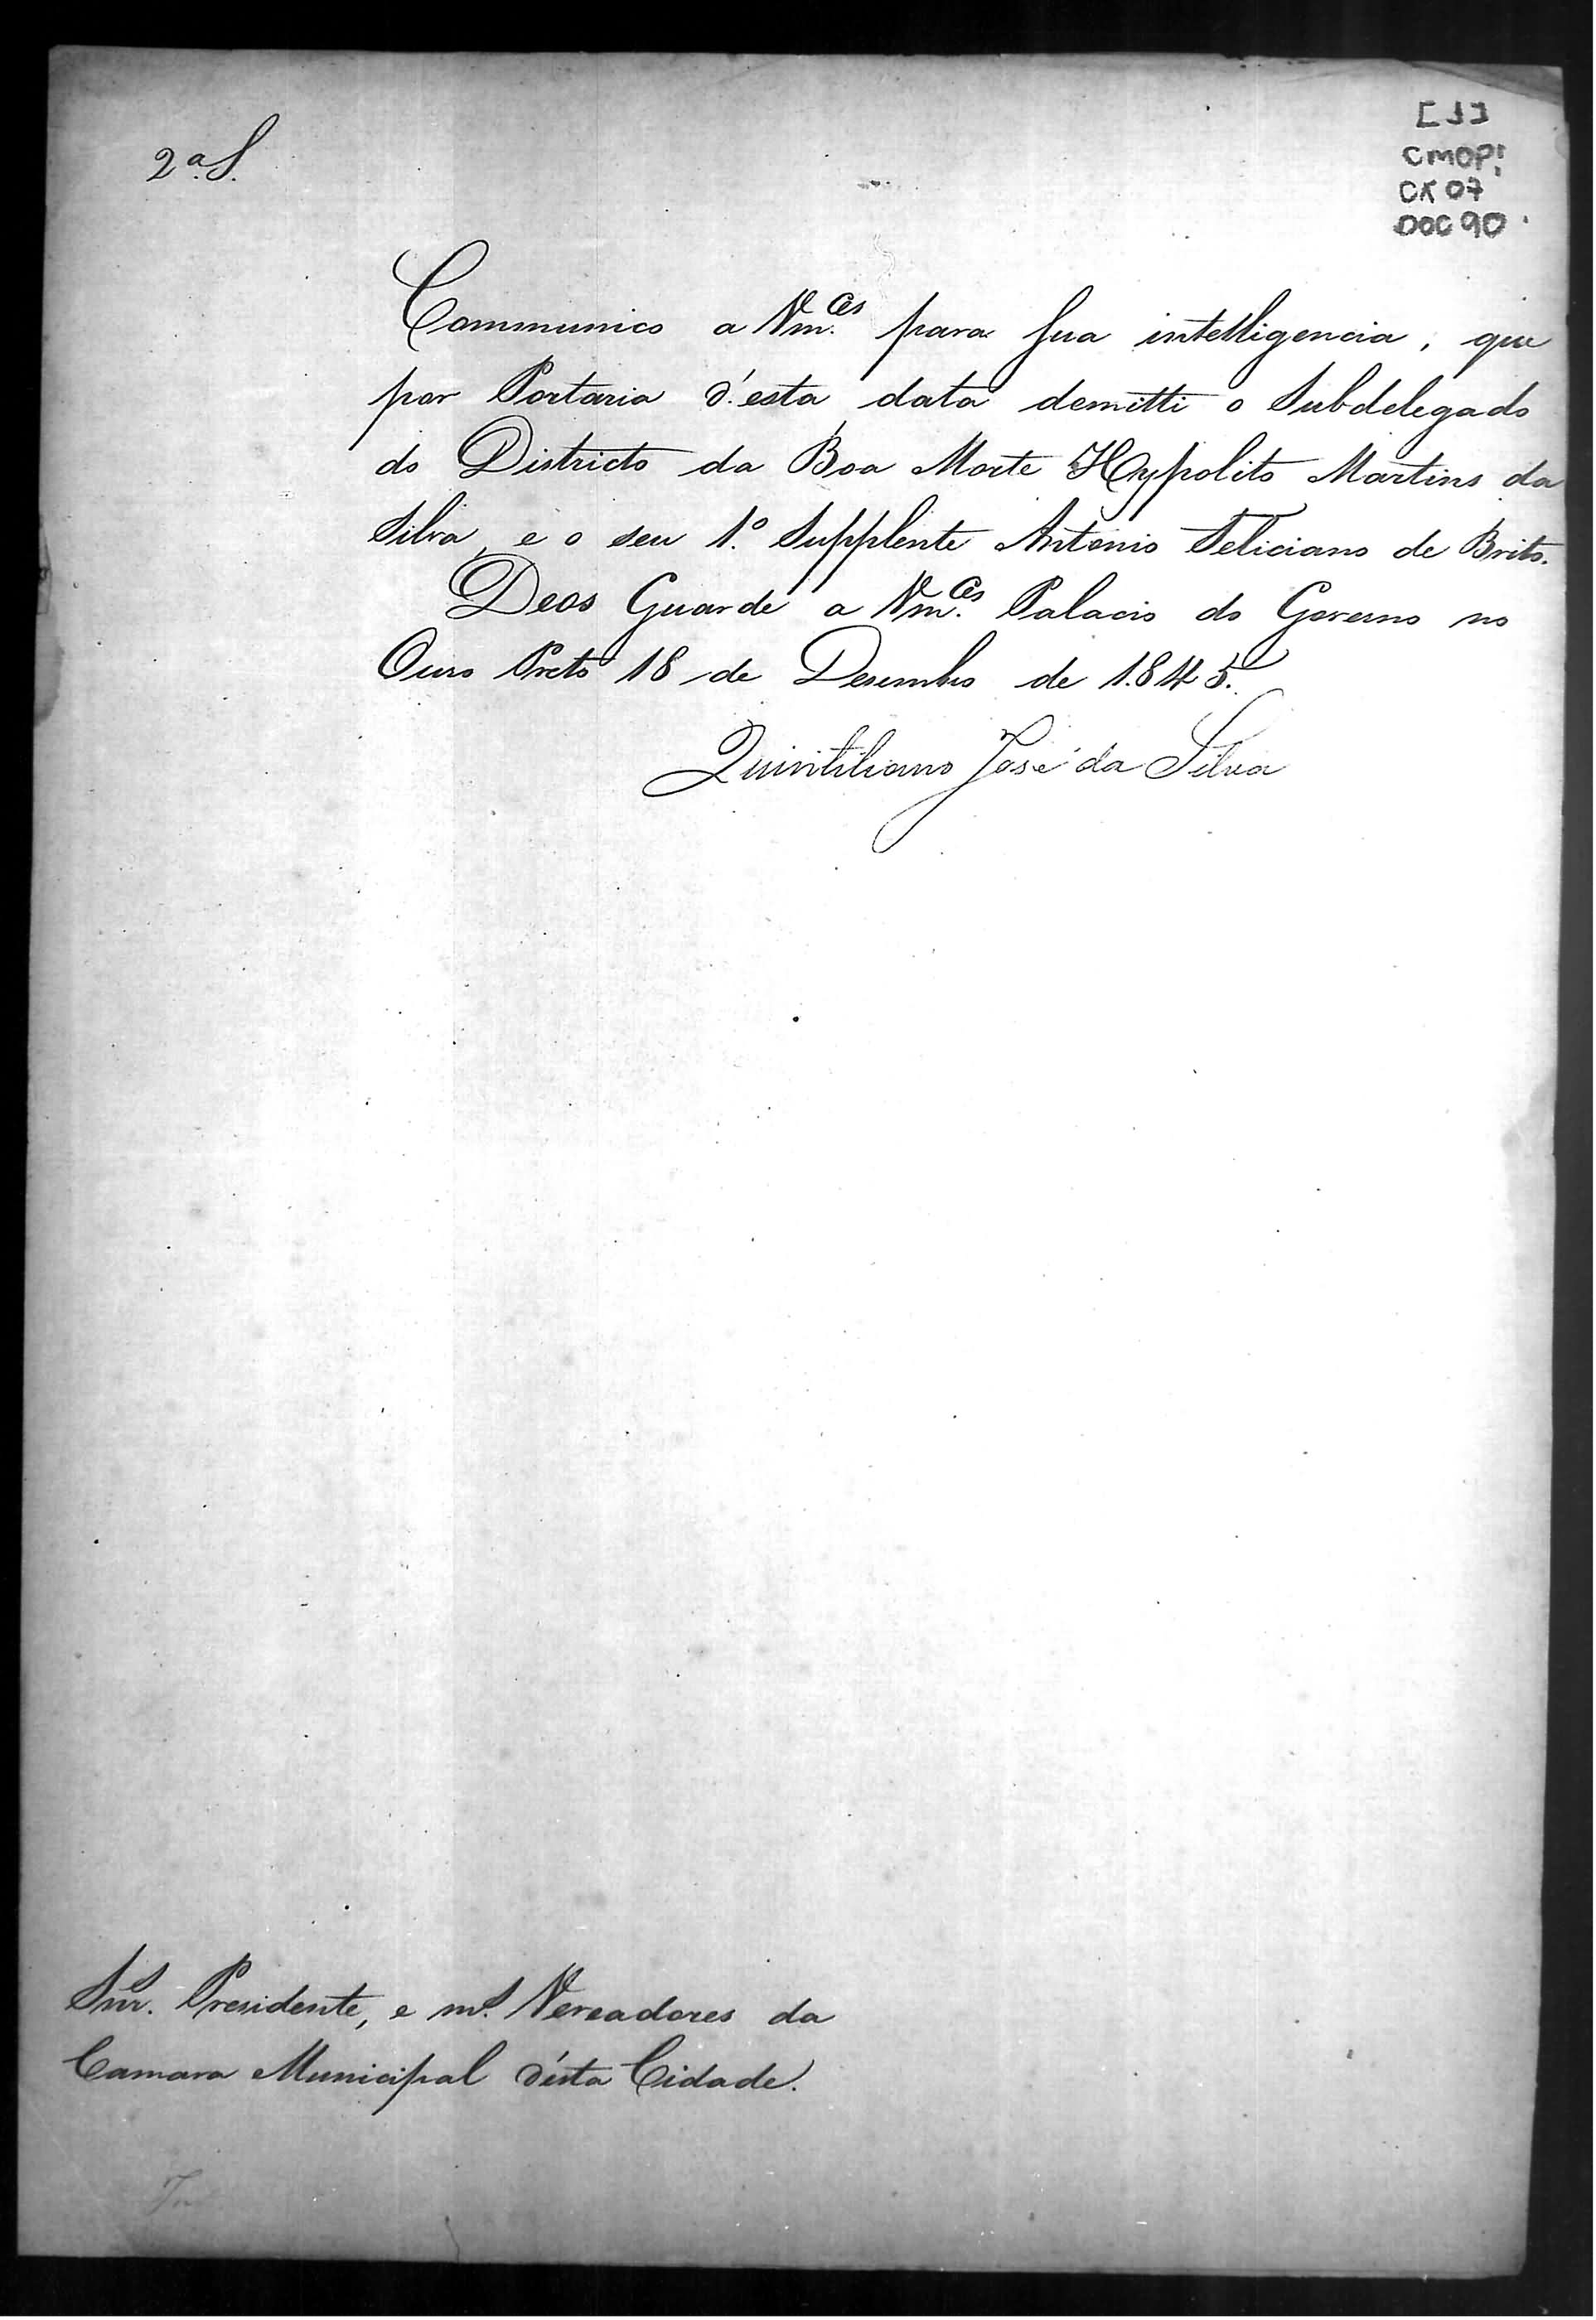 2.ª S.
[1]
CMOP!
CX 07
DOC 90
Communico a Vm.ces para sua intelligencia, que
por Portaria d'esta data demitti o Subdelegado
do Districto da Boa Morte Hyppolito Martins da
Silva, e o seu 1.º Supplente Antonio Feliciano de Brito.
Deos Guarde a Vm.ces Palacio do Governo no
Ouro Preto 18 de Desembro de 1845.
Quintiliano José da Silva
Snr. Presidente, e m.s Vereadores da
Camara Municipal d'esta Cidade.